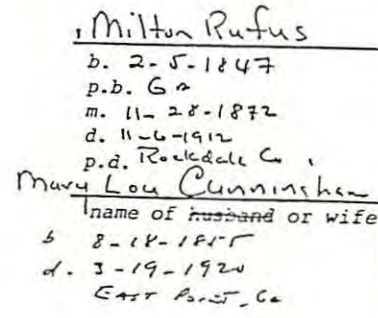 , Milton Rufus
b. 2-5-1847
p.b. Ga
m. 11-28-1872
d. 11-6-1912
p.d. Rockdale Co.
Mary Lou Cunningham
name of husband or wife
b 8-18-1855
d. 3-19-1920
East Point, Ga